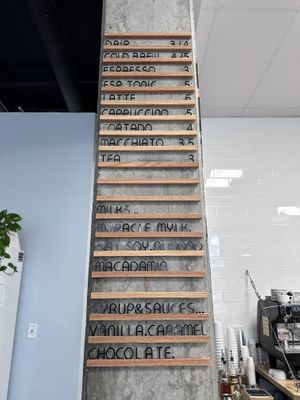 DRIP 3/4
COLD BREW 4/5
ESPRESSO 3
ESP. TONIC 5
LATTE 5
CAPPUCCINO 5
CORTADO 4
MACCHIATO 3.5
TEA 3
MILKS...
MIRACLE MYLK,
OAT, SOY, ALMOND
MACADAMIA
SYRUP&SAUCES...
VANILLA, CARAMEL
CHOCOLATE.